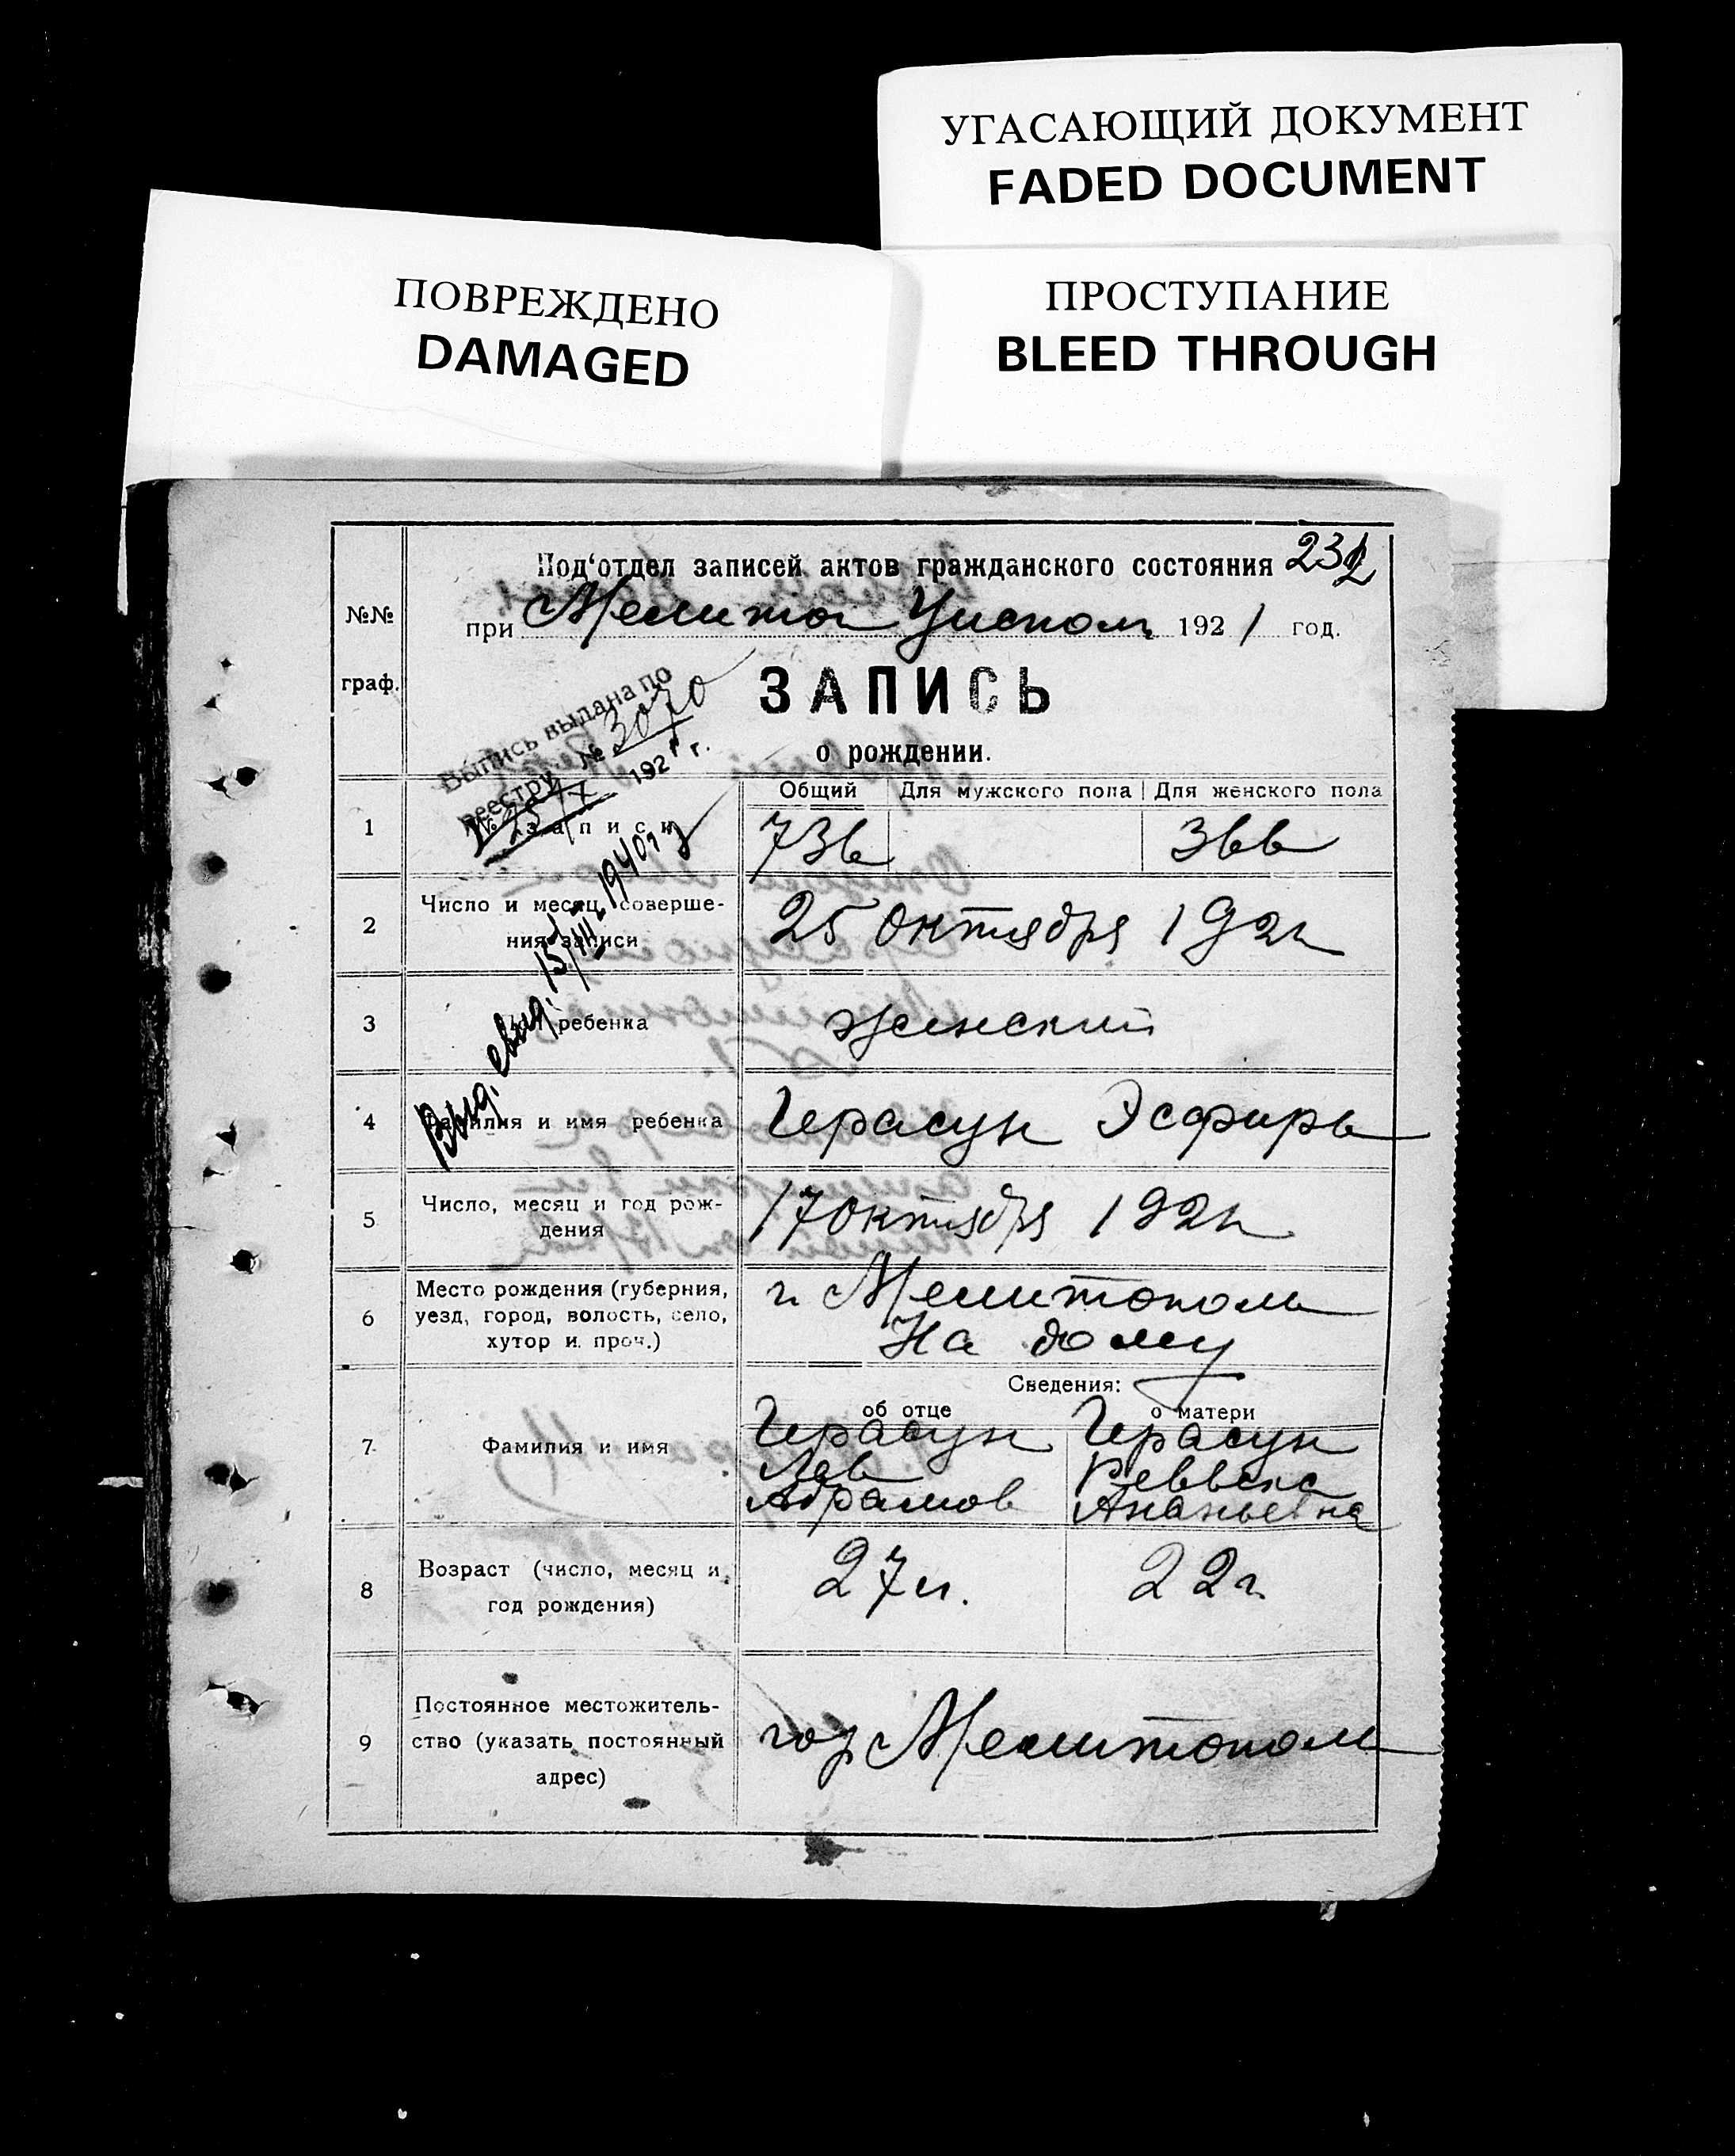 УГАСАЮЩИЙ ДОКУМЕНТ
FADED DOCUMENT
ПОВРЕЖДЕНО
DAMAGED
ПРОСТУПАНИЕ
BLEED THROUGH
Под'отдел записей актов гражданского состояния 232
№№ граф.
при Мелитоп Уиспом 1921 год.
ЗАПИСЬ
о рождении.
Выпись выдана по
реестру № 3070
25/X 1921 г.
Выд. свид. 15/III 1940 г.
Общий Для мужского пола Для женского пола
1 № записи 736 366
2 Число и месяц соверше-
ния записи 25 октября 1921
3 Пол ребенка женский
4 Фамилия и имя ребенка Герасун Эсфирь
5 Число, месяц и год рож-
дения 17 октября 1921
6 Место рождения (губерния,
уезд, город, волость, село,
хутор и проч.) г. Мелитополь
На дому
Сведения:
об отце о матери
7 Фамилия и имя Герасун Герасун
Лев Реввека
Абрамов Ананьевна
8 Возраст (число, месяц и
год рождения) 27 л. 22 г.
9 Постоянное местожитель-
ство (указать постоянный
адрес) гор Мелитополь